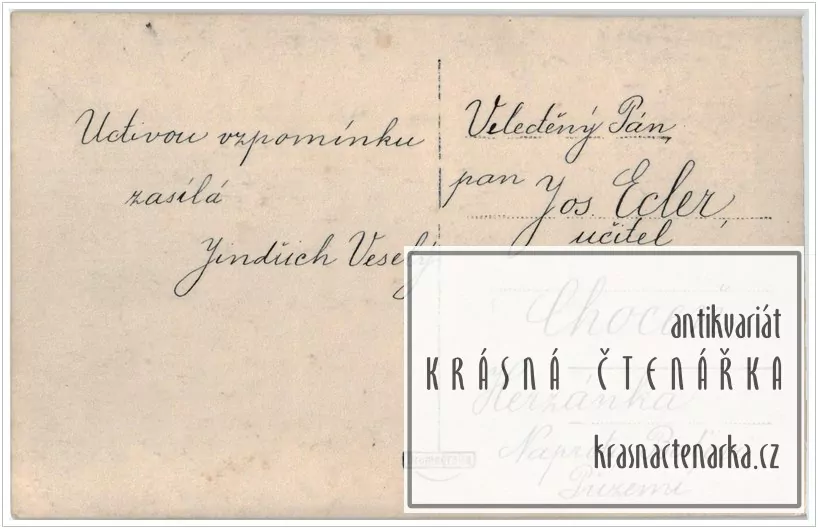 Uctivou vzpomínku
zasílá
Jindřich Veselý
Velectěný Pán,
pan Jos. Ecler,
učitel
Choceň
antikvariát
KRÁSNÁ ČTENÁŘKA
Herzánka
krasnactenarka.cz
Přízemí